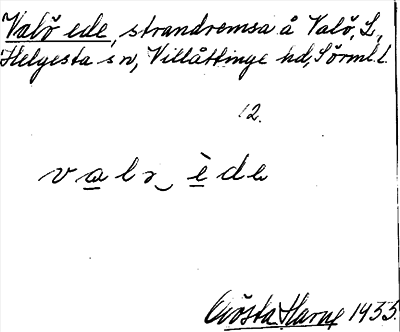 Valö ede, strandremsa å Valö, L,
Helgesta sn, Villåttinge hd, Sörml. l.
12.
valɿ‿ède
Gösta Harne 1933.